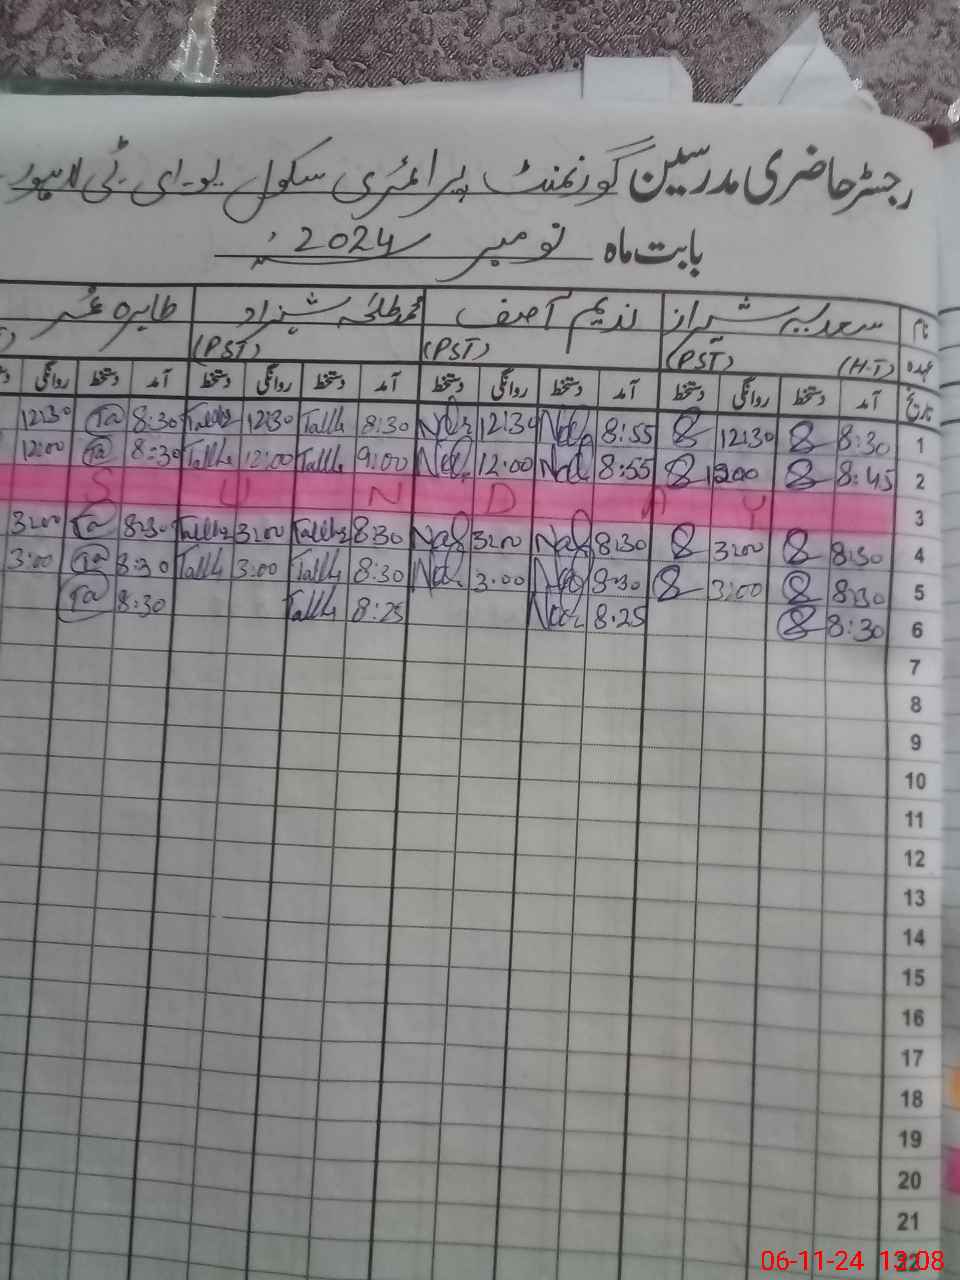 رجسٹر حاضری مدرسین گورنمنٹ پرائمری سکول یو۔ای۔ٹی لاہور
بابت ماہ نومبر 2024ء
نام سعدیہ شیراز ندیم آصف محمد طلحہ شہزاد طاہرہ عمر
عہدہ (H-T) (PST) (PST) (PST)
تاریخ آمد دستخط روانگی دستخط آمد دستخط روانگی دستخط آمد دستخط روانگی دستخط آمد دستخط روانگی
1 8:30 12:30 8:55 12:30 8:30 Talha 12:30 Talha 8:30 Ta 12:30
2 8:45 1200 8:55 12:00 9:00 Talha 12:00 Talha 8:30 Ta 12:00
3 SUNDAY
4 8:30 3:00 8:30 3:00 8:30 Talha 3:00 Talha 8:30 Ta 3:00
5 8:30 3:00 8:30 3:00 8:30 Talha 3:00 Talha 8:30 Ta 3:00
6 8:30 8:25 8:25 Talha 8:30 Ta
7
8
9
10
11
12
13
14
15
16
17
18
19
20
21
22
06-11-24 13:08